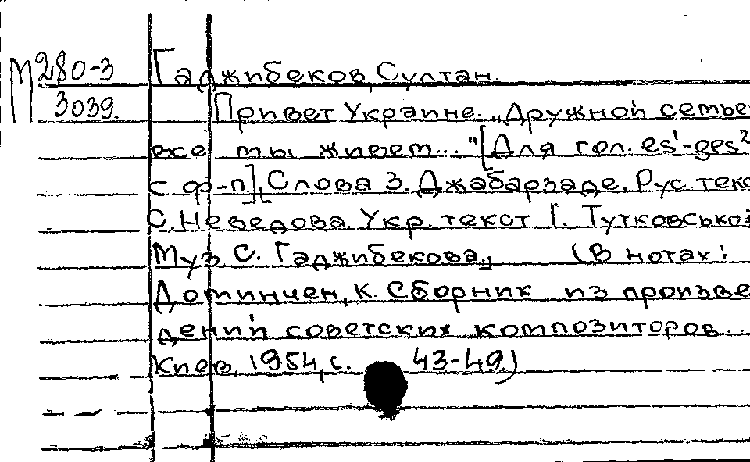 М 280-3 Гаджибеков, Султан.
3039. Привет Украине. „Дружной семье
все мы живем..." [Для гол. es¹-ges²
с ф-п], Слова З. Джабарзаде. Рус. текс
С. Неведова Укр. текст Г. Тутковської
Муз. С. Гаджибекова. (В нотах:
Доминчен, К. Сборник из произве
дений советских композиторов...
Киев, 1954, с. 43-49)